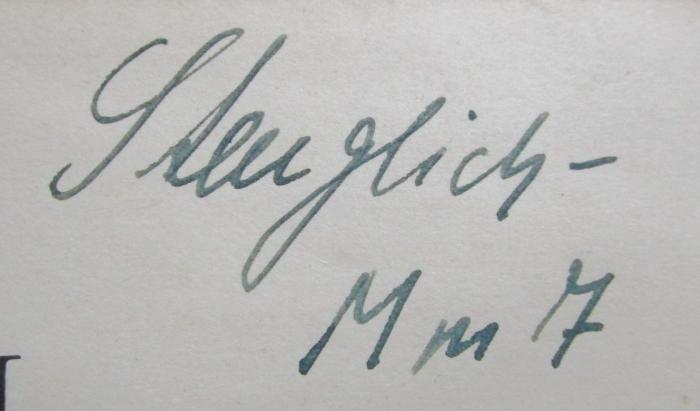 Stenglich-
M m 7